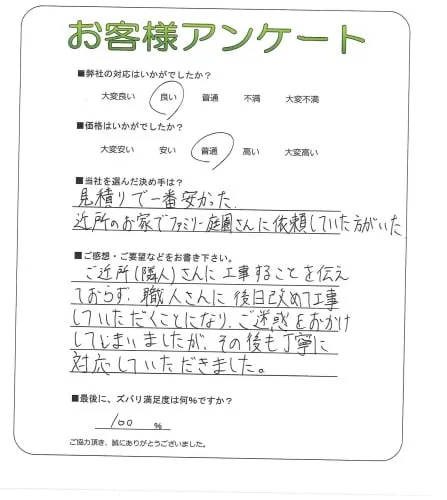 お客様アンケート
■弊社の対応はいかがでしたか?
大変良い 良い 普通 不満 大変不満
■価格はいかがでしたか?
大変安い 安い 普通 高い 大変高い
■当社を選んだ決め手は?
見積りで一番安かった.
近所のお家でファミリー庭園さんに依頼していた方がいた
■ご感想・ご要望などをお書き下さい。
ご近所(隣人)さんに工事することを伝え
ておらず、職人さんに後日改めて工事
していただくことになり、ご迷惑をおかけ
してしまいましたが、その後も丁寧に
対応していただきました。
■最後に、ズバリ満足度は何%ですか?
100 %
ご協力頂き、誠にありがとうございました。